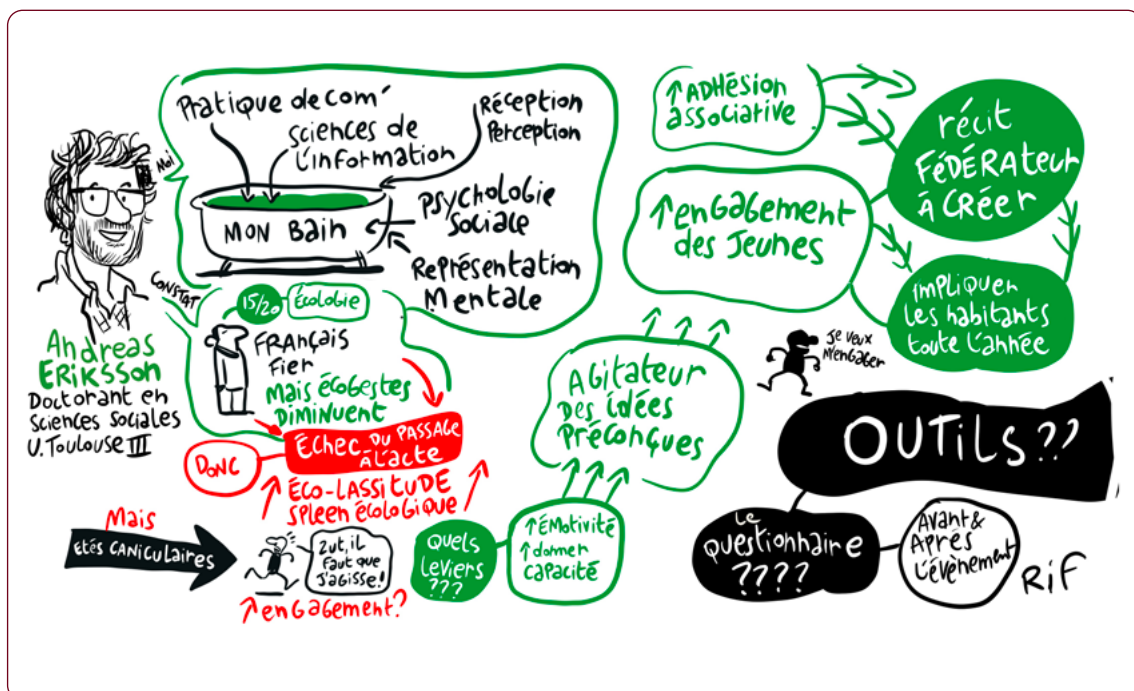 Moi
Andreas
Eriksson
Doctorant en
sciences sociales
U. Toulouse III
Pratique de com'
sciences de
l'information
Réception
Perception
Mon bain
Psychologie
Sociale
Représentation
Mentale
Constat
15/20
Écologie
Français
Fier
Mais écogestes
diminuent
Donc
Échec du passage
à l'acte
Éco-lassitude
Spleen écologique
Mais
Etés caniculaires
Zut, il
faut que
j'agisse!
↑ engagement?
Quels
leviers
???
↑ émotivité
↑ donner
capacité
Agitateur
des idées
préconçues
↑ Adhésion
associative
↑ engagement
des jeunes
récit
fédérateur
à créer
impliquer
les habitants
toute l'année
Je veux
m'engager
OUTILS??
Le
questionnaire
????
Avant &
Après
l'évènement
RiF